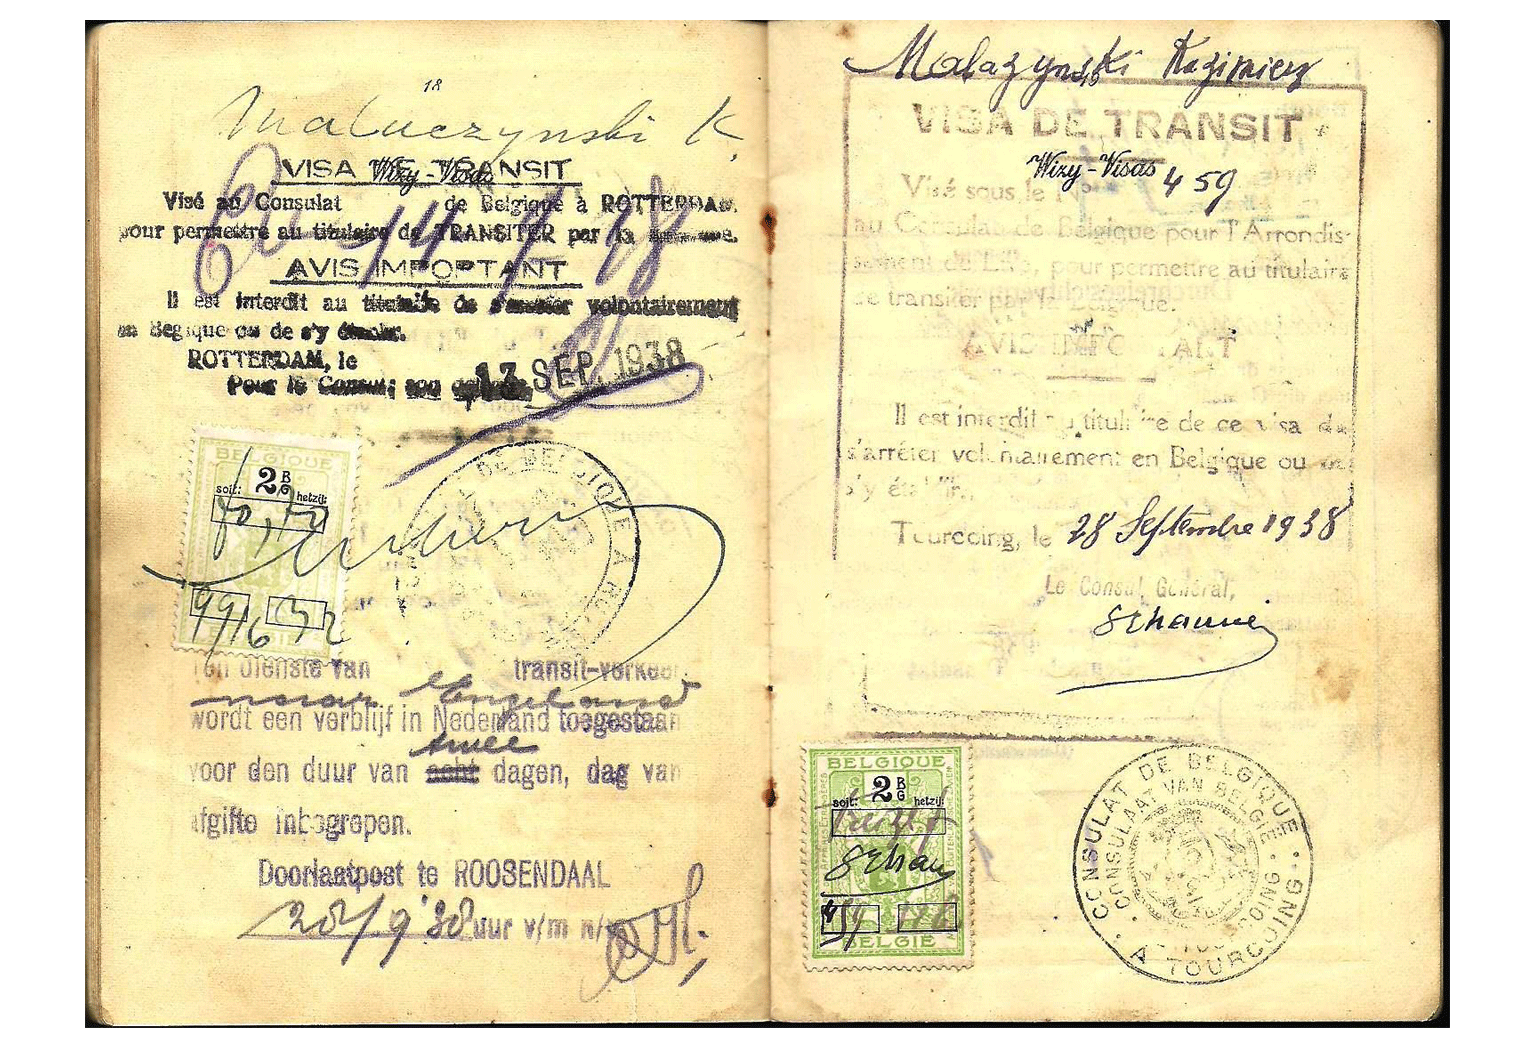 18
Maluczynski K.
VISA DE TRANSIT
Wizy - Visas
Visé au Consulat de Belgique à ROTTERDAM.
pour permettre au titulaire de TRANSITER par la
AVIS IMPORTANT
Il est interdit au titulaire de s'arrêter volontairement
en Belgique ou de s'y établir.
ROTTERDAM, le
13 SEP. 1938
Pour le Consul;
BELGIQUE
soit: 2 B G hetzij:
BELGIË
DE BELGIQUE A
Ten dienste van transit-verkeer
naar Engeland
wordt een verblijf in Nederland toegestaan
twee
voor den duur van acht dagen, dag van
afgifte inbegrepen.
Doorlaatpost te ROOSENDAAL
28/9'38 uur v/m n/m
Malazynski Kazimierz
VISA DE TRANSIT
Wizy - Visas
Visé sous le N 459
au Consulat de Belgique pour l'Arrondis-
sement de Lille, pour permettre au titulaire
de transiter par la Belgique.
AVIS IMPORTANT
Il est interdit au titulaire de ce visa de
s'arrêter volontairement en Belgique ou de
s'y établir.
Tourcoing, le 28 Septembre 1938
Le Consul Général,
BELGIQUE
soit: 2 B G hetzij:
BELGIË
CONSULAT DE BELGIQUE · A TOURCOING ·
CONSULAAT VAN BELGIË ·